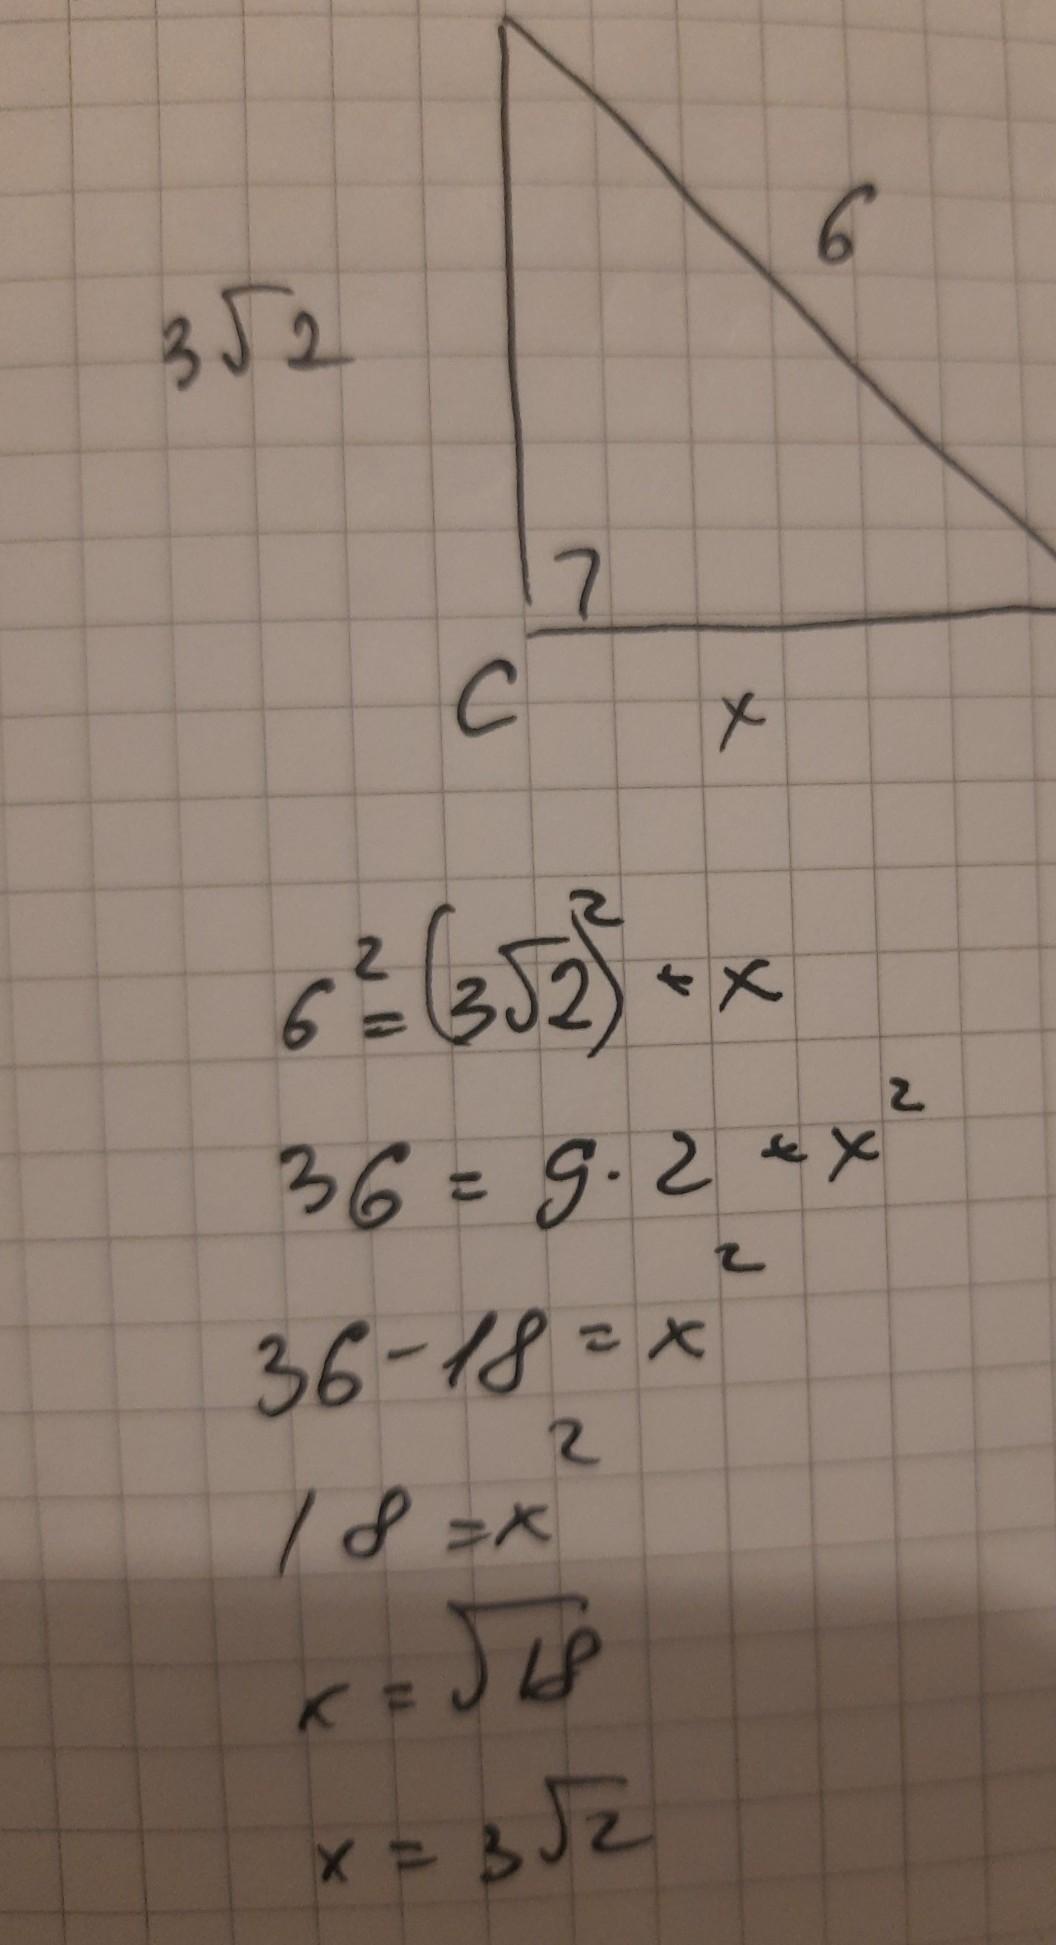 6
3√2
C
x
6² = (3√2)² + x
36 = 9 · 2 + x²
36 - 18 = x²
18 = x²
x = √18
x = 3√2